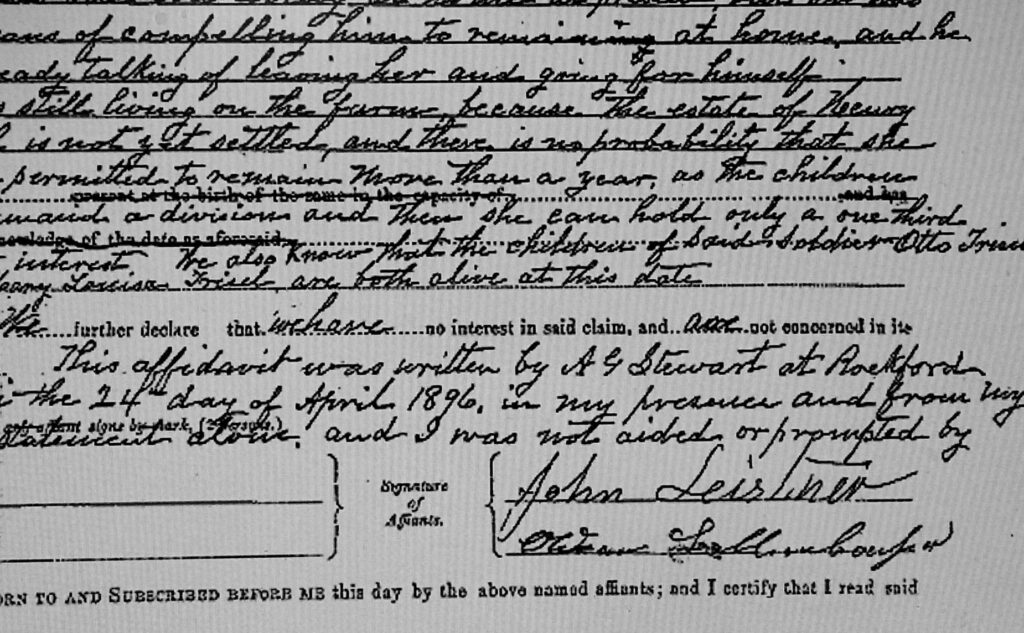 ans of compelling him to remaining at home, and he
eady talking of leaving her and going for himself
s still living on the farm, because the estate of Henry
l is not yet settled, and there is no probability that she
permitted to remain more than a year, as the children
present at the birth of the same in the capacity of and has
emand a division and then she can hold only a one third
nowledge of the date as aforesaid
interest We also know that the children of said soldier Otto Trisel
Louisa Trisel, are both alive at this date
We further declare that we have no interest in said claim, and are not concerned in its
This affidavit was written by A G Stewart at Rockford
the 24th day of April 1896, in my presence and from my
signs by mark, (2 Persons.)
statement alone, and I was not aided or prompted by
Signature
of
Affiants.
John Leistner
ORN TO AND SUBSCRIBED BEFORE ME this day by the above named affiants; and I certify that I read said